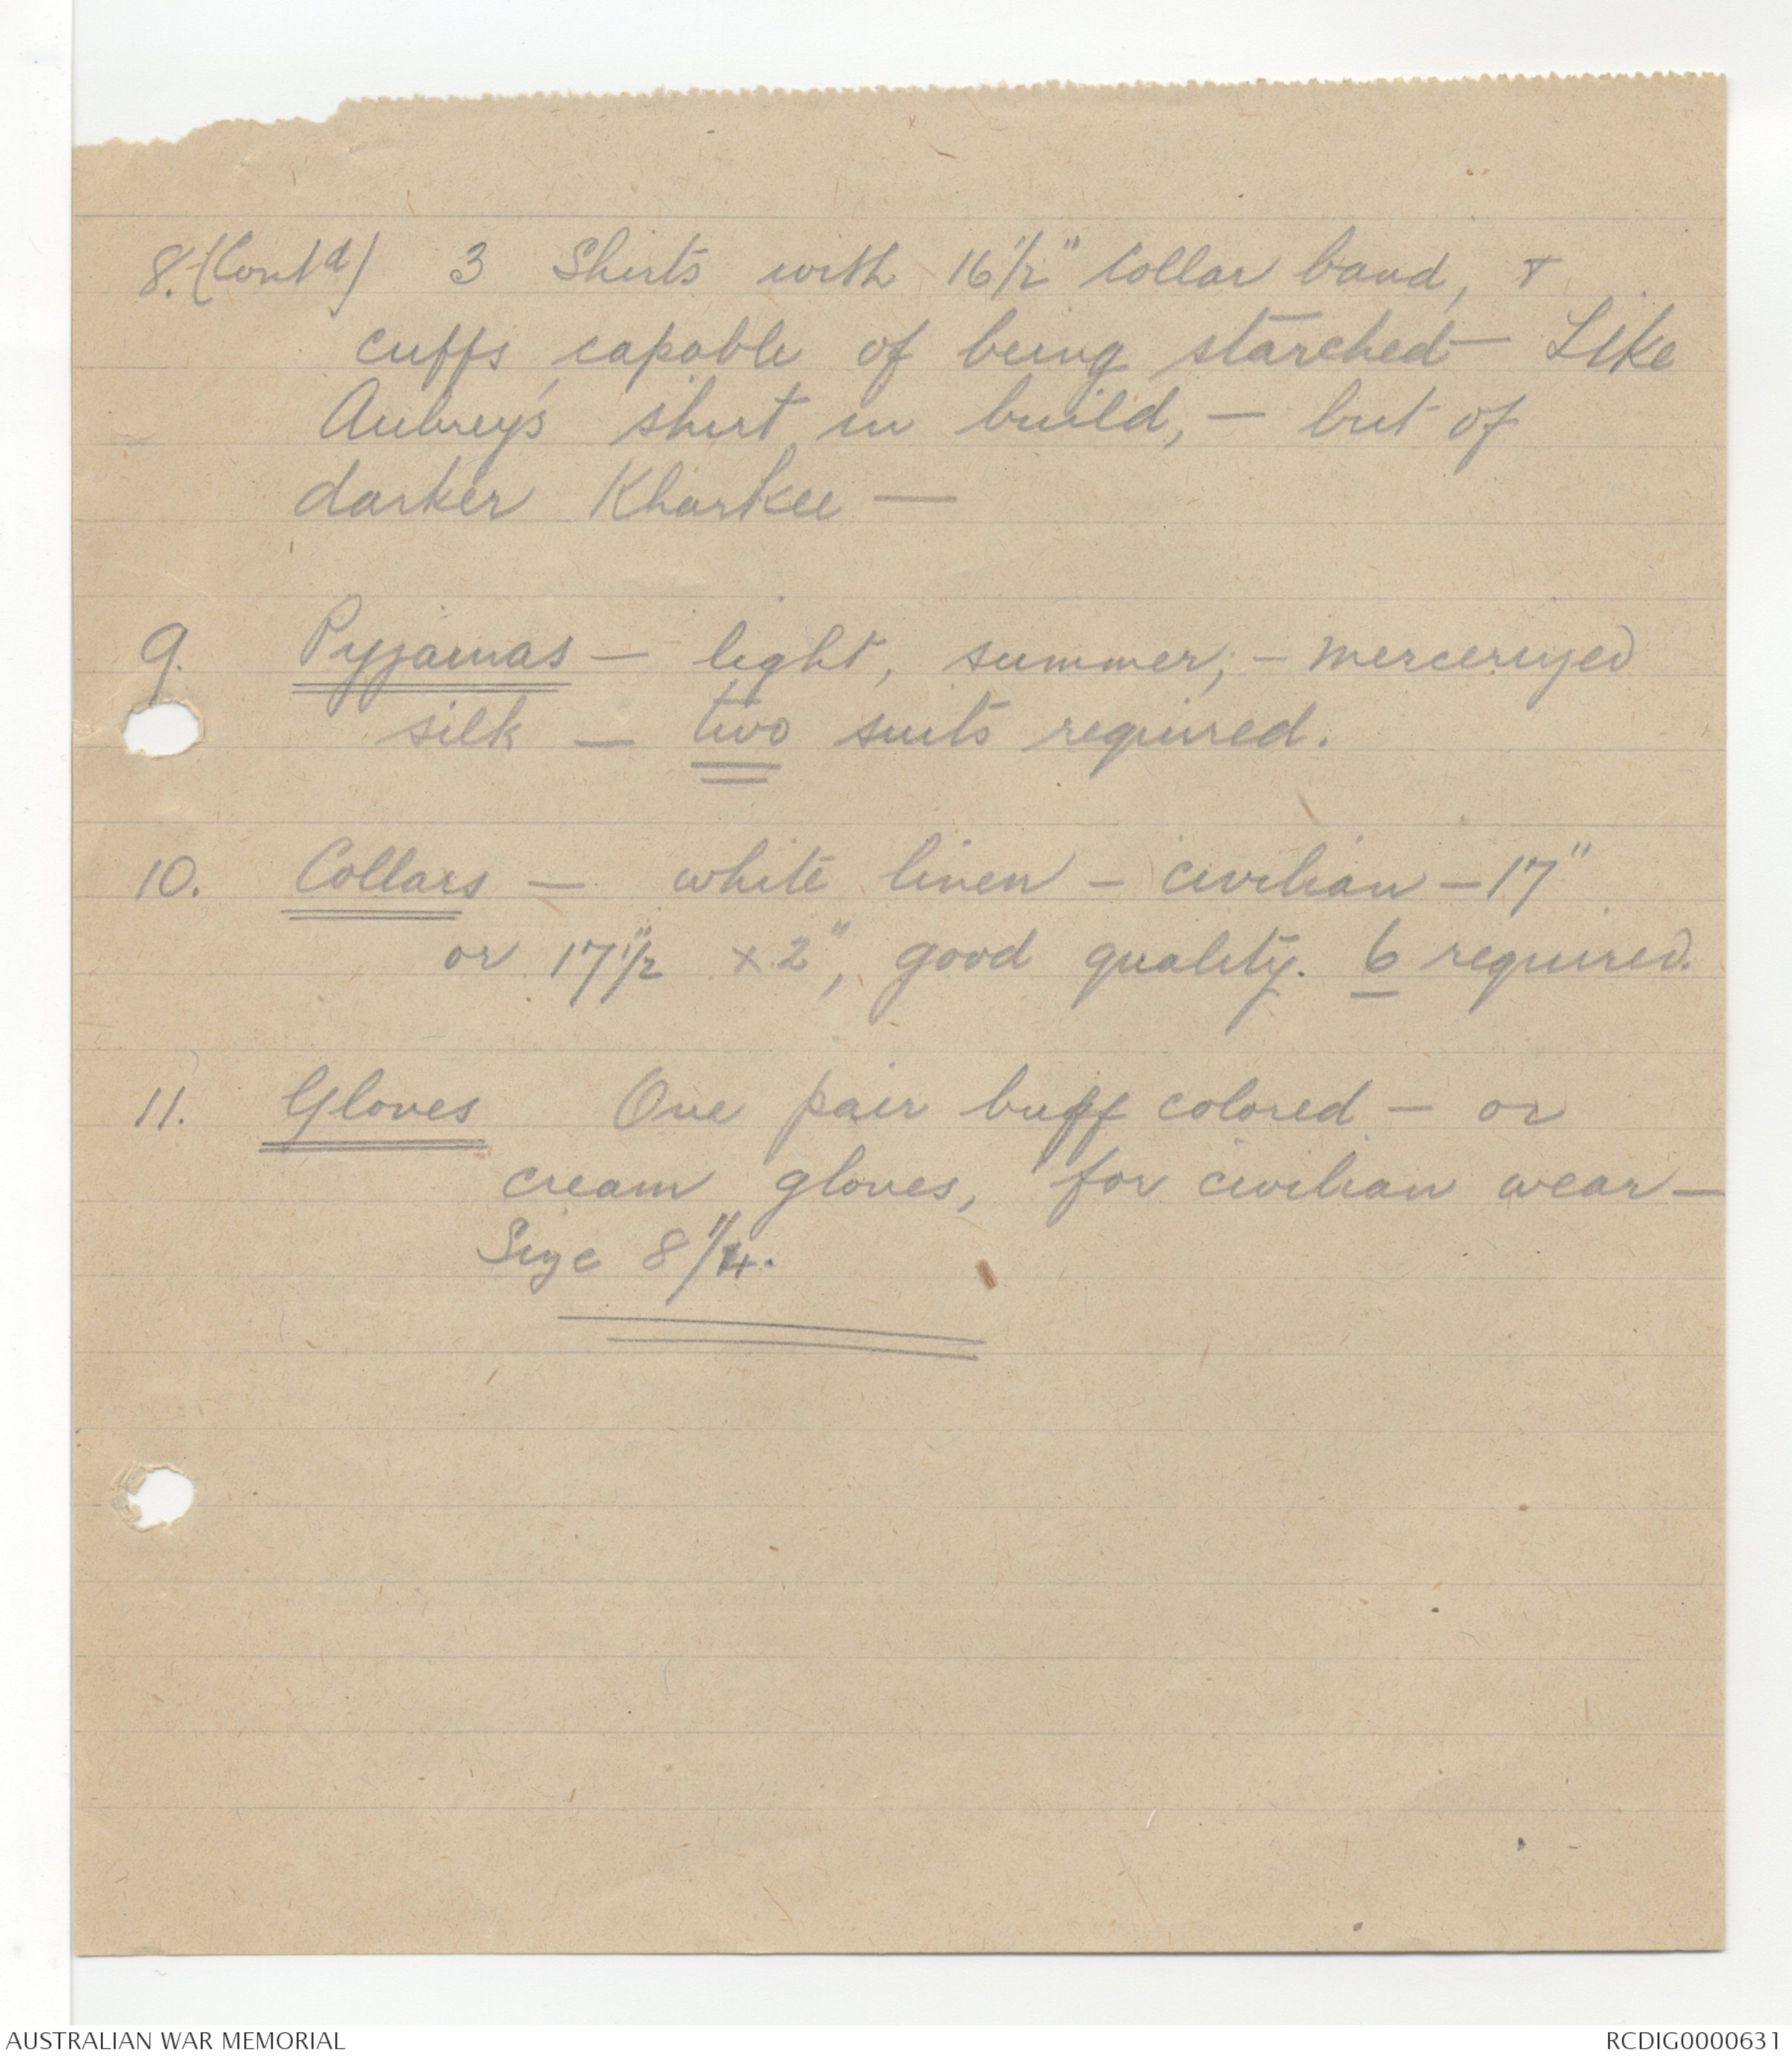 8. (Contd) 3 Shirts with 16 1/2" Collar band, &
cuffs, capable of being starched — Like
Aubrey's shirt in build, — but of
darker Kharkee —
9. Pyjamas — light, summer, — mercerized
silk — two suits required.
10. Collars — white linen — civilian — 17"
or 17 1/2" x 2", good quality. 6 required.
11. Gloves One pair buff colored — or
cream gloves, for civilian wear —
Size 8 1/4.
AUSTRALIAN WAR MEMORIAL
RCDIG0000631